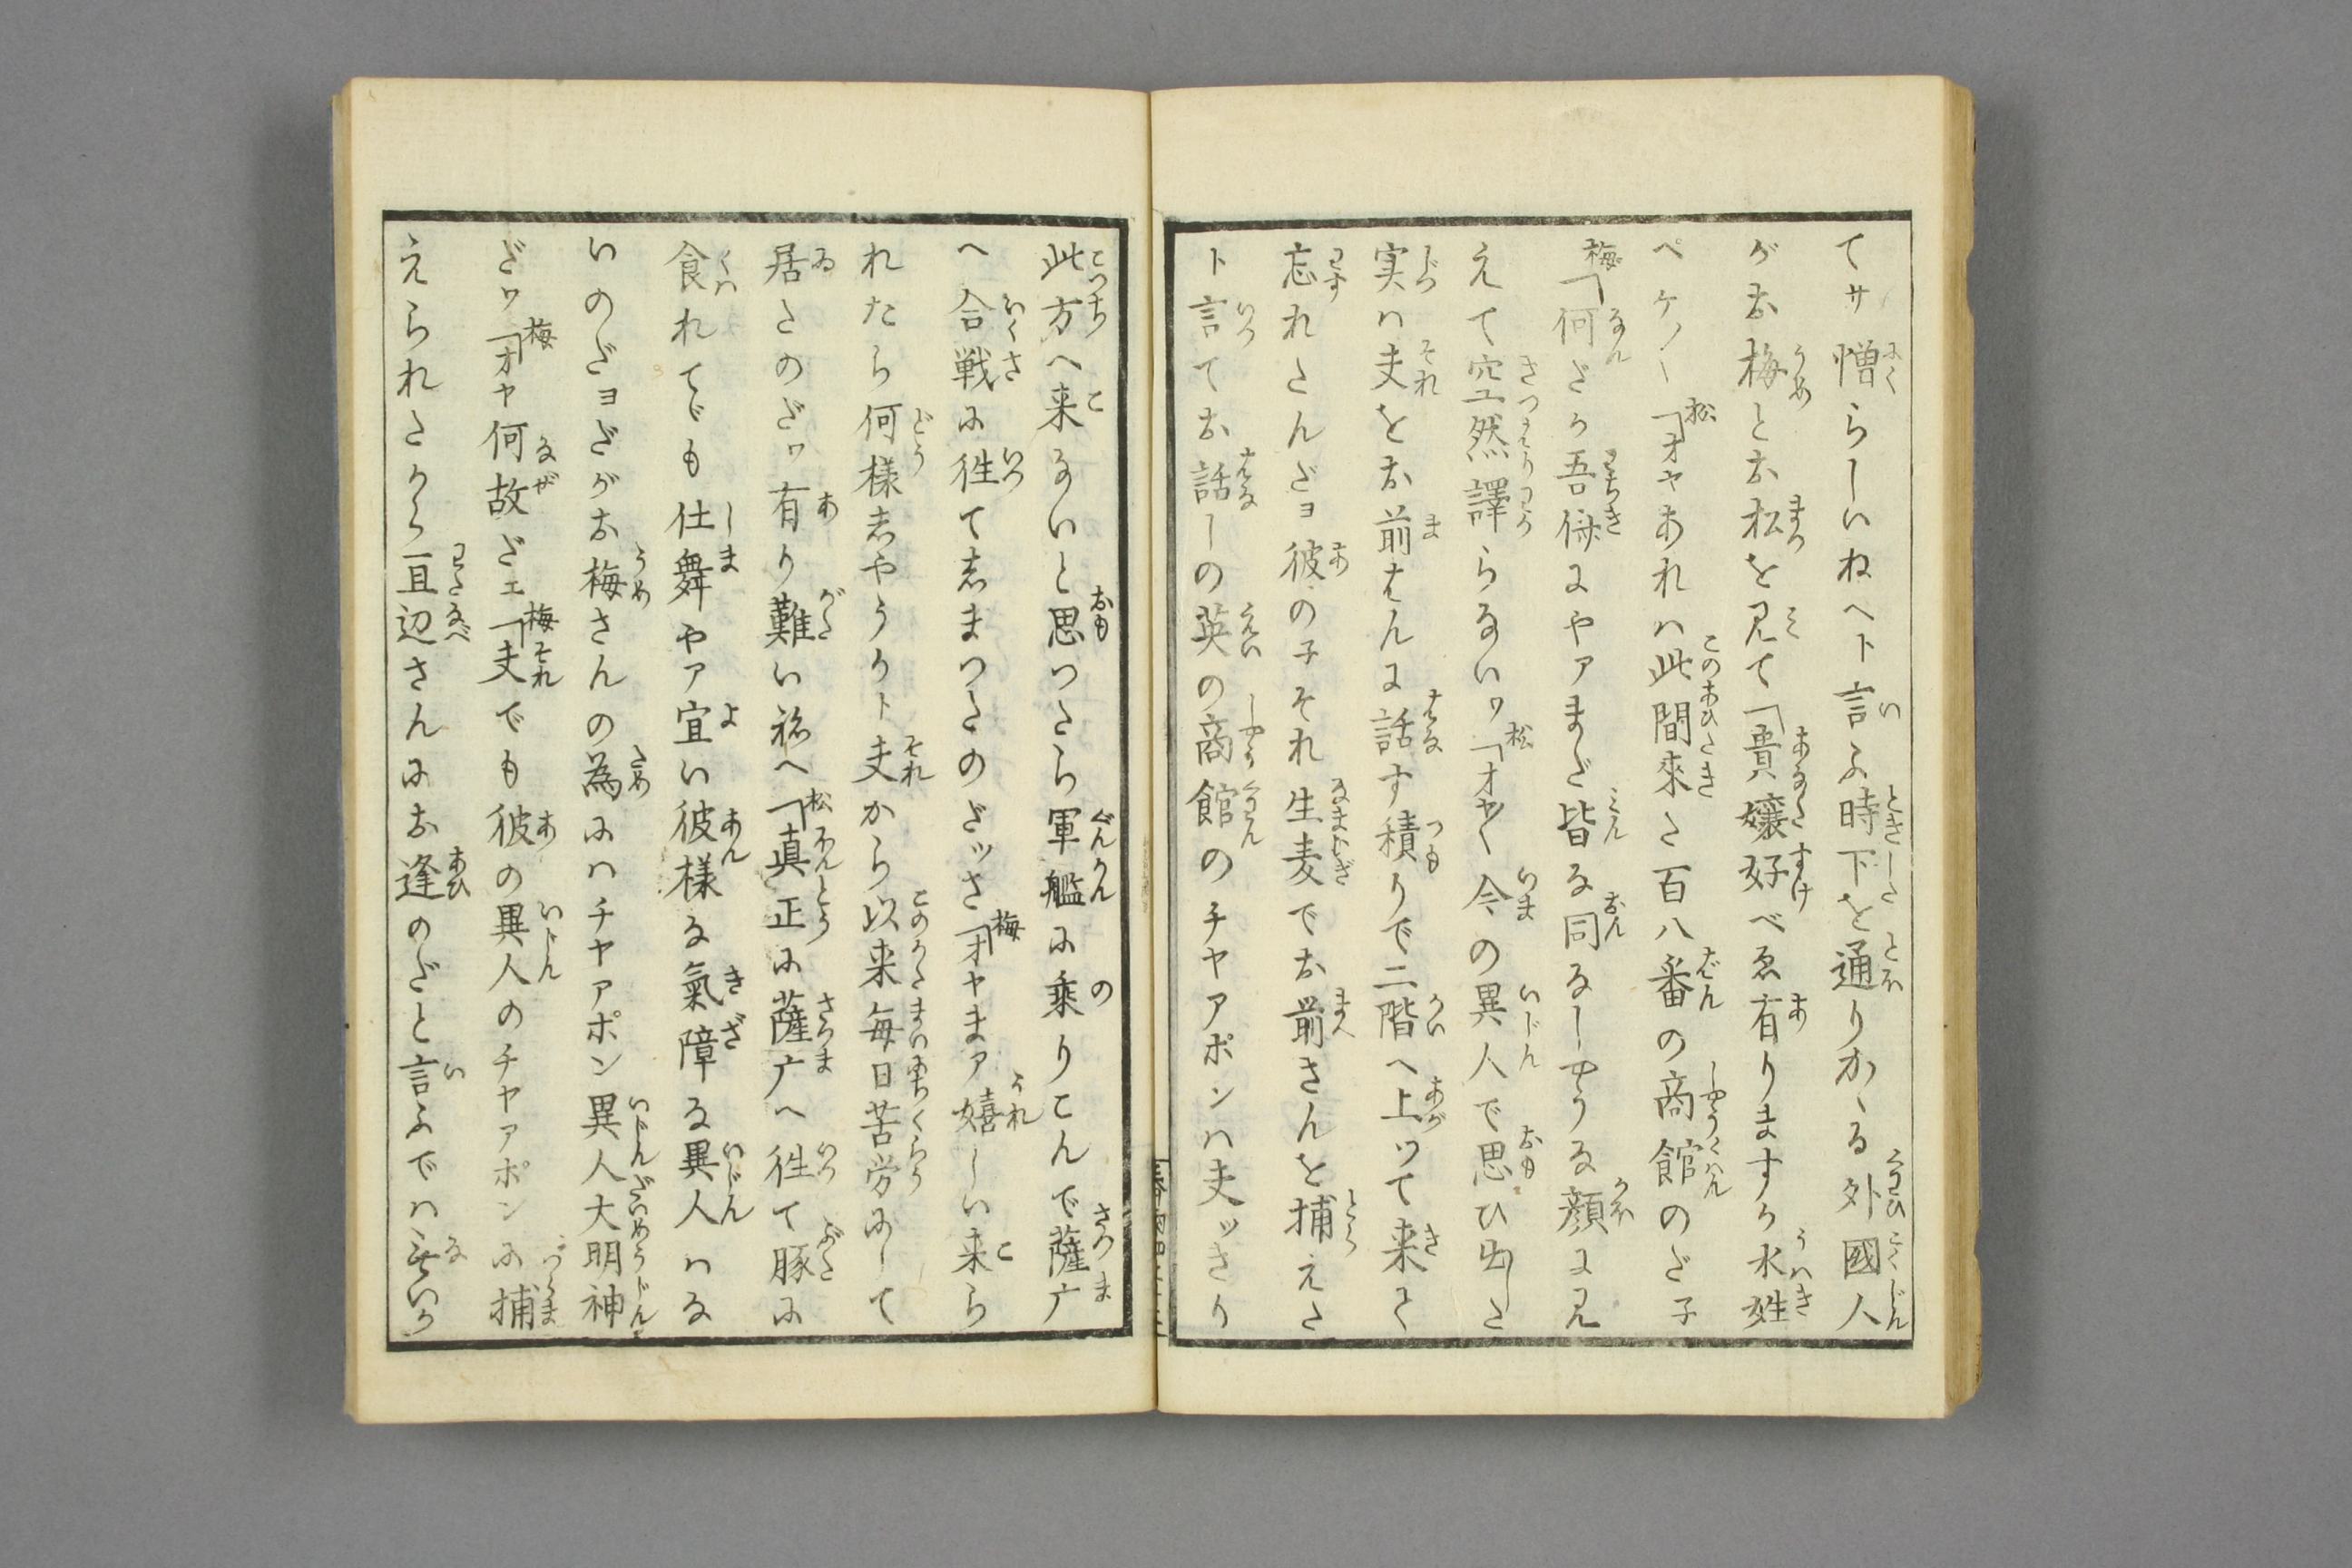 てサ憎らしいねへト言ふ時下を通りかゝる外國人
がお梅とお松を見て「貴嬢好べゑ有りますか水姓
ペケ〳〵松「オヤあれハ此間来た百八番の商館のだ子
梅「何だか吾儕にやアまだ皆な同なしやうな顔に見
えて空然譯らないワ松「オヤ〳〵今の異人で思ひ出した
実ハ夫をお前はんに話す積りで二階へ上ツて来て
忘れたんだヨ彼の子それ生麦でお前さんを捕えた
ト言てお話しの英の商館のチヤアポンハ夫ツきり
此方へ来ないと思つたら軍艦に乗りこんで薩广
へ合戦に徃て志まつたのだツさ梅「オヤまア嬉しい来ら
れたら何様志やうかト夫から以来毎日苦労にして
居たのだワ有り難い祢へ松「真正に薩广へ徃て豚に
食れてでも仕舞やア宜い彼様な氣障な異人ハな
いのだヨだがお梅さんの為にハチヤアポン異人大明神
だワ梅「オヤ何故だエ梅「夫でも彼の異人のチヤアポンに捕
えられたから亘辺さんにお逢のだと言ふでハ無いか